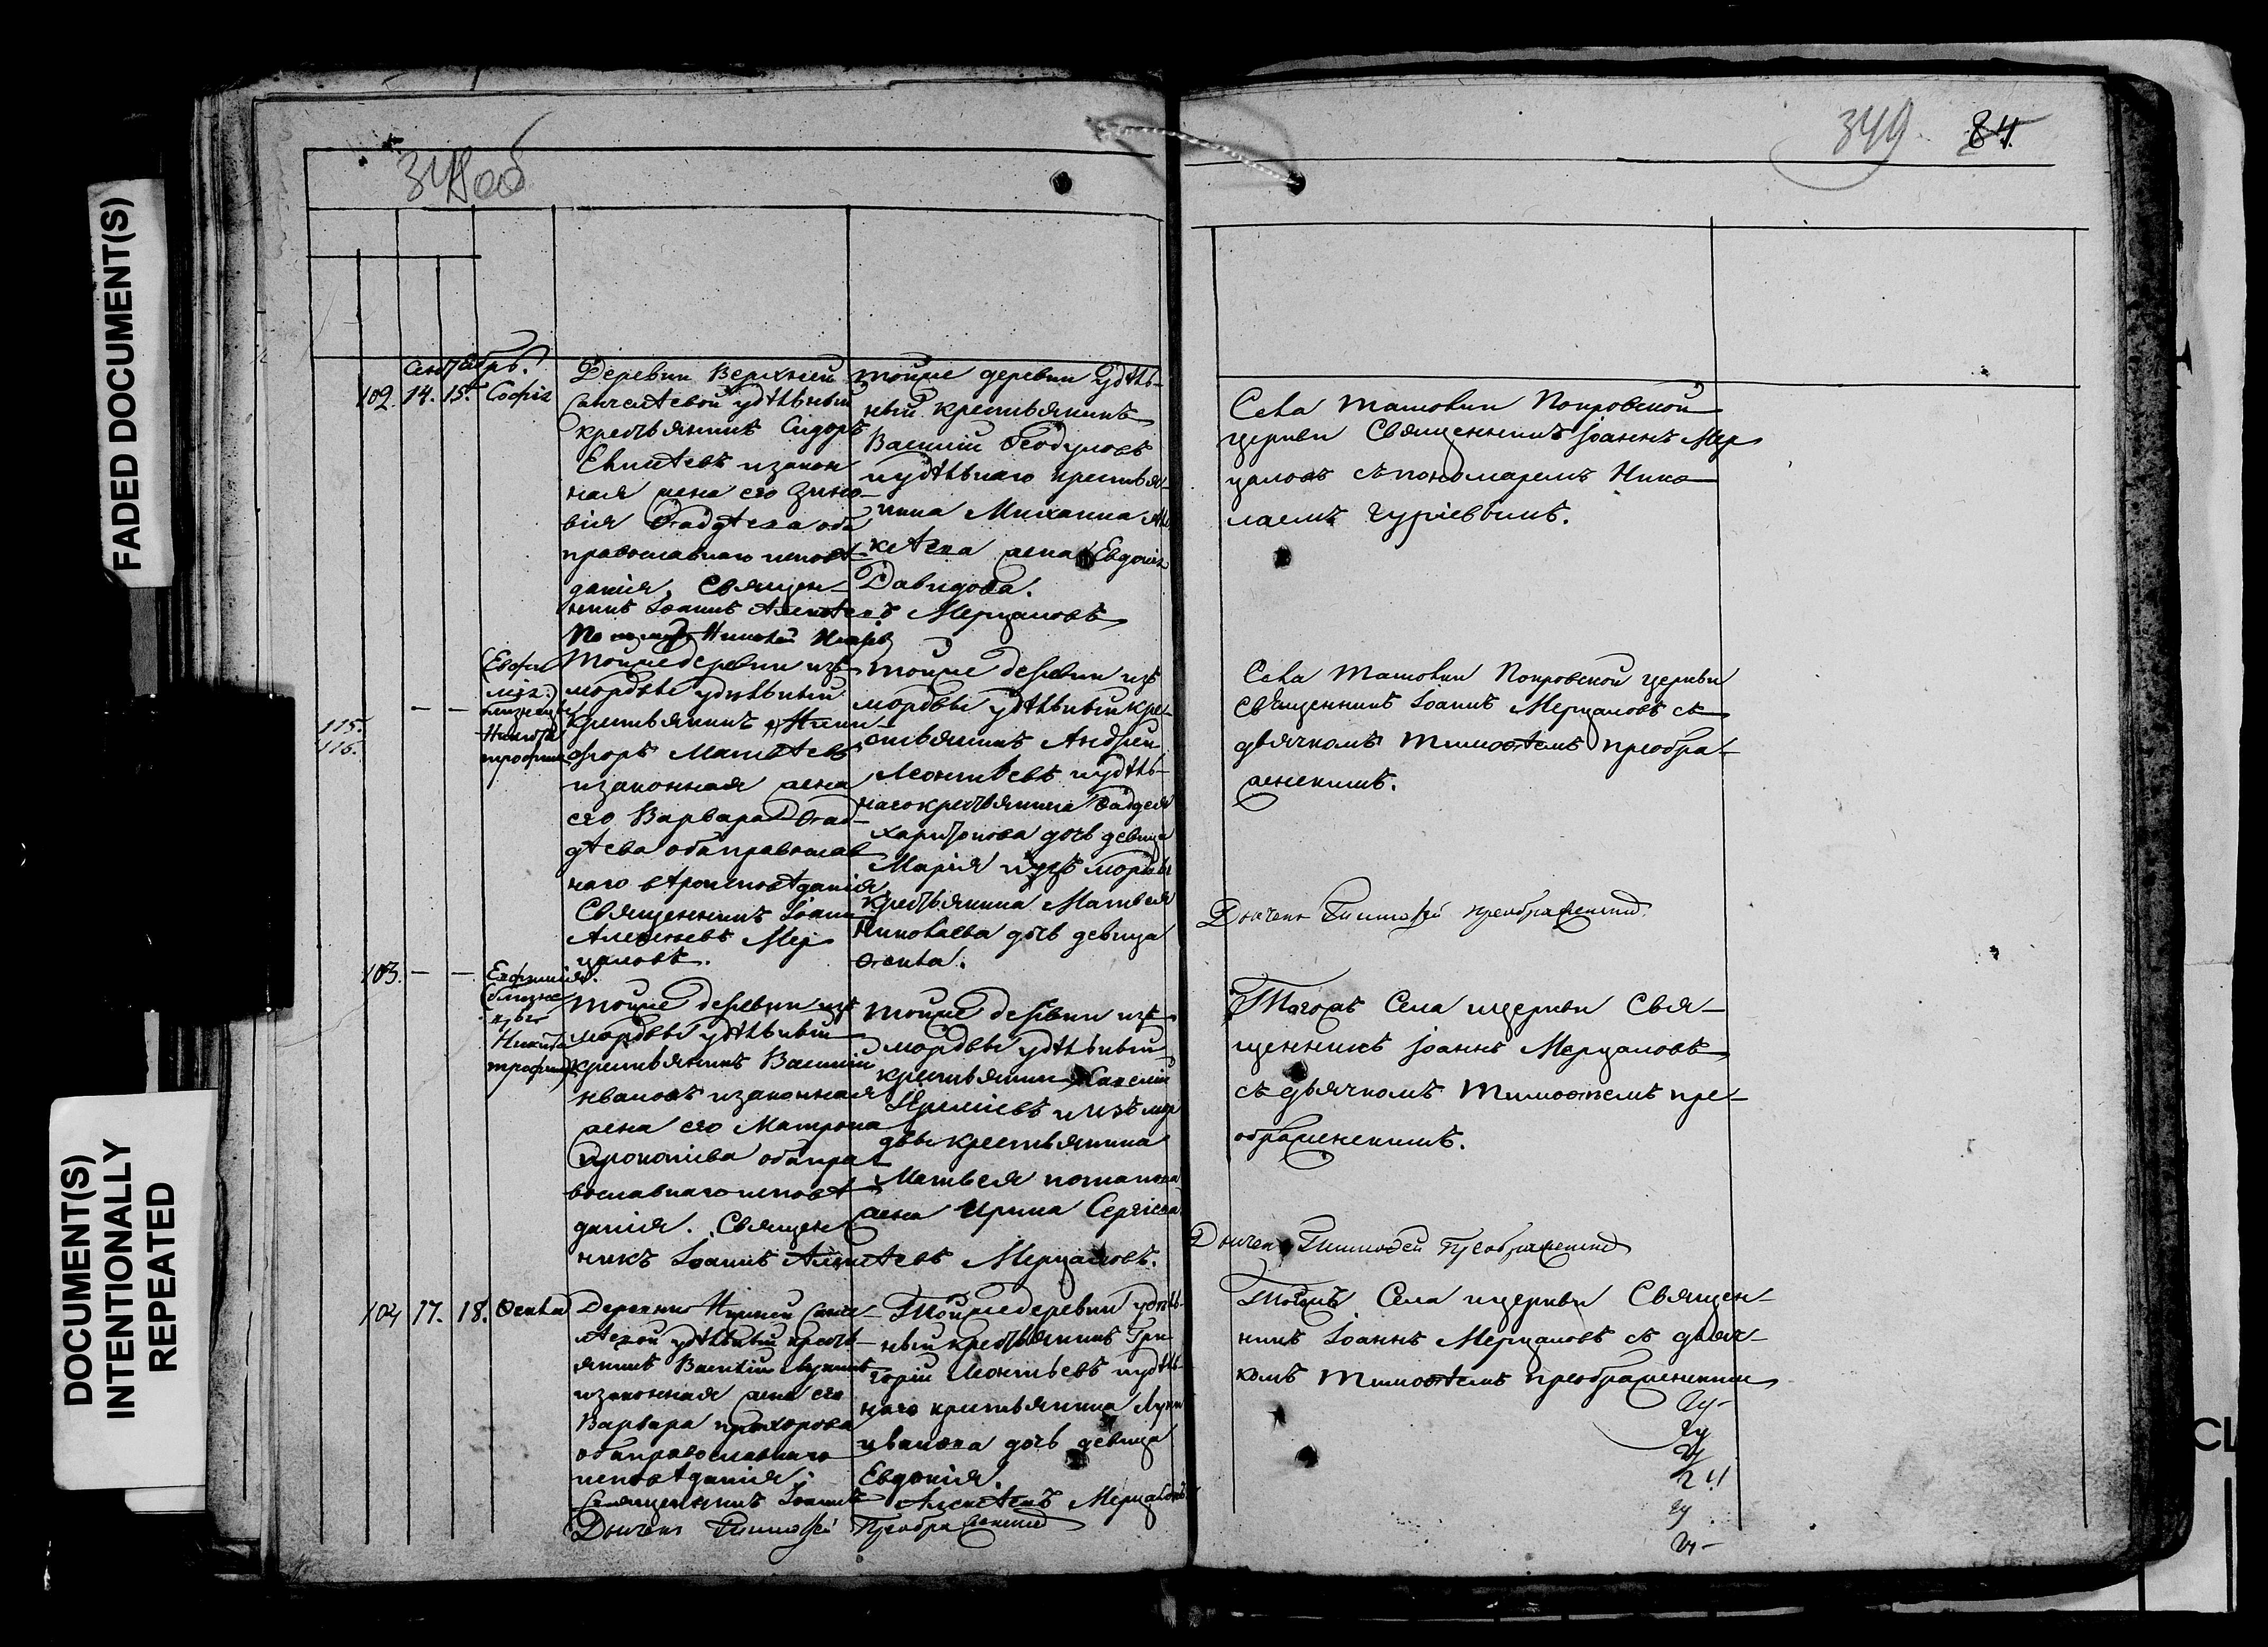 FADED DOCUMENT(S)
DOCUMENT(S)
INTENTIONALLY
REPEATED
348 об
349 84.
Сентябрь.
102. 14. 15. Софія
Деревни Верхней
удѣльный
крестьянинъ Сидоръ
и закон
ная жена его Зино
вія Ѳадѣева оба
православнаго исповѣ
данія. Священ
никъ Іоаннъ Алексѣевъ Мерцаловъ
тойже деревни удѣль
ный крестьянинъ
Василій Ѳеодуловъ
и удѣльнаго крестья
нина Михаила
жена Евдокія
Давидова.
Села Машовки Покровской
церкви Священникъ Іоаннъ Мер
цаловъ съ пономаремъ Нико
лаемъ Гуріевымъ.
115.
116.
— —
(Евфи
мія.)
близнецы
Никита
трофимъ
Тойже деревни изъ
мордвы удѣльный
крестьянинъ Ники
форъ Матвѣевъ
и законная жена
его Варвара Ѳад
дѣева оба православ
наго вѣроисповѣданія
Священникъ Іоаннъ
Алексѣевъ Мер
цаловъ.
тойже деревни изъ
мордвы удѣльный кре
стьянинъ Андрей
Леонтьевъ и удѣль
наго крестьянина Ѳаддея
Харитонова дочь девица
Марія и изъ мордвы
крестьянина Матвея
Николаева дочь девица
Ѳекла.
Села Машовки Покровской церкви
Священникъ Іоаннъ Мерцаловъ съ
дьячкомъ Тимоѳѣемъ преобра
женскимъ.
Дьячекъ Тимофей Преображенский
103. — — Евфимія.
(близне
цы
Никита
трофимъ)
тойже деревни изъ
мордвы удѣльный
крестьянинъ Василій
Ивановъ и законная
жена его Матрона
Прокопіева оба пра
вославнаго исповѣ
данія. Священ
никъ Іоаннъ Алексѣевъ Мерцаловъ.
тойже деревни изъ
мордвы удѣльный
крестьянинъ Савелій
и изъ мор
двы крестьянина
Матвея потапова
жена Ирина Сергіева
Тогожъ Села и церкви Свя
щенникъ Іоаннъ Мерцаловъ
съ дьячкомъ Тимоѳѣемъ пре
ображенскимъ.
Дьячекъ Тимофей Преображенский
104 17. 18. Ѳекла
Деревни Нижней
удѣльный кресть
янинъ Василій
и законная жена его
Варвара прохорова
оба православнаго
исповѣданія.
Священникъ Іоаннъ Алексѣевъ Мерцаловъ
Дьячекъ Тимофей Преображенский
Тойже деревни удѣль
ный крестьянинъ Гри
горій Леонтьевъ и удѣль
наго крестьянина Луки
иванова дочь девица
Евдокія.
Тогожъ Села и церкви Священ
никъ Іоаннъ Мерцаловъ съ дьяч
комъ Тимоѳѣемъ преображенским